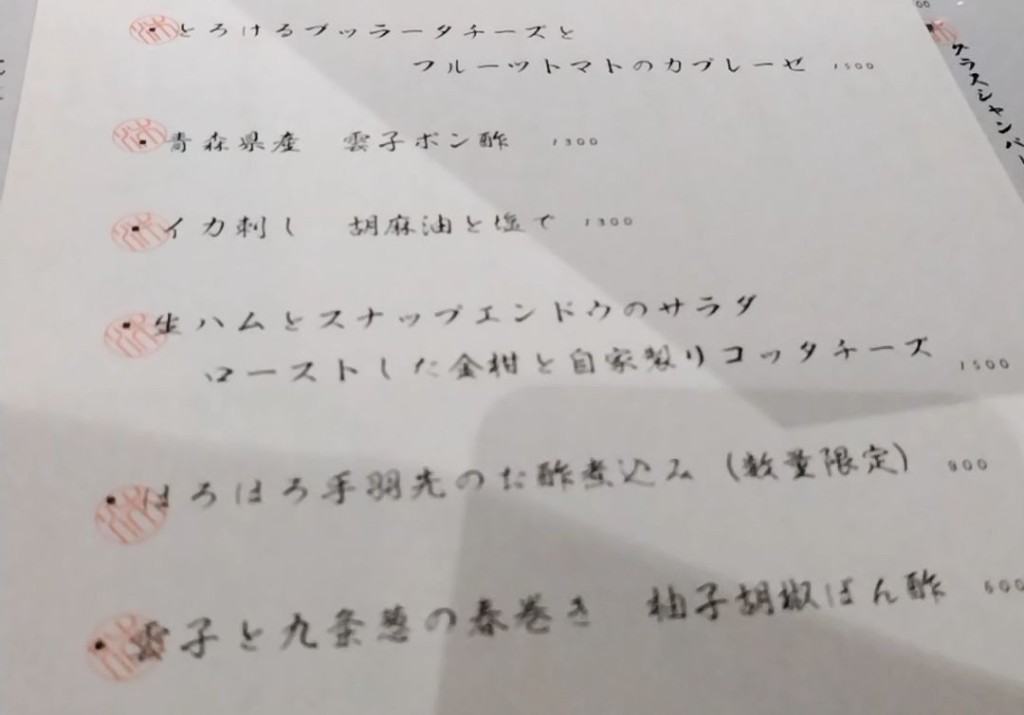 ・とろけるブッラータチーズと
フルーツトマトのカプレーゼ 1500
・青森県産 雲子ポン酢 1300
・イカ刺し 胡麻油と塩で 1300
・生ハムとスナップエンドウのサラダ
ローストした金柑と自家製リコッタチーズ 1500
・ほろほろ手羽先のお酢煮込み(数量限定) 900
・雲子と九条葱の春巻き 柚子胡椒ぽん酢 600
グラスシャンパー
00